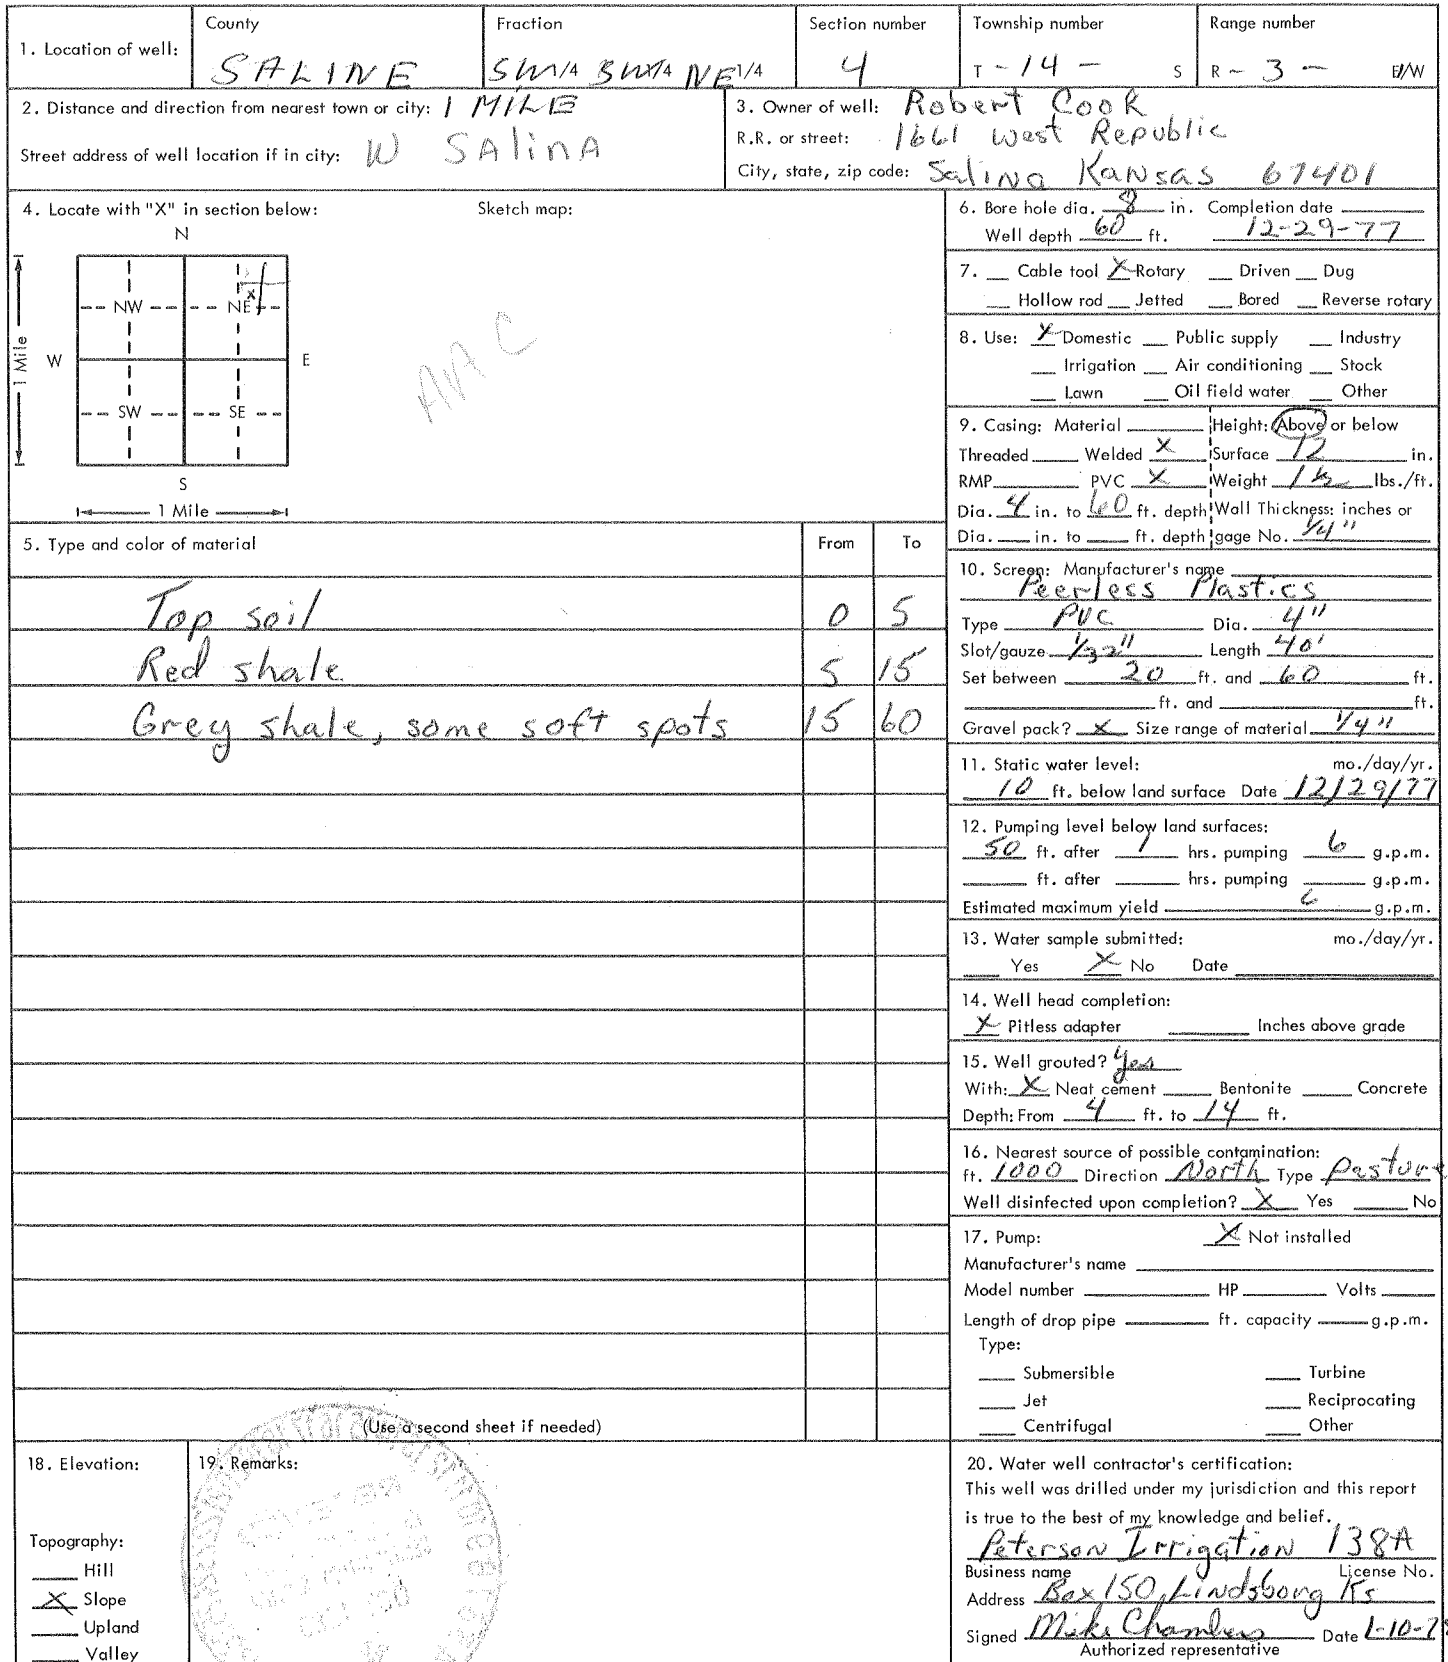 1. Location of well:
County
SALINE
Fraction
SW1/4 SW1/4 NE1/4
Section number
4
Township number
T - 14 - S
Range number
R - 3 - E/W
2. Distance and direction from nearest town or city: 1 MILE
Street address of well location if in city: W SALINA
3. Owner of well: Robert Cook
R.R. or street: 1661 West Republic
City, state, zip code: Salina Kansas 67401
4. Locate with "X" in section below:
Sketch map:
N
NW NE
X
W E
SW SE
S
1 Mile
1 Mile
5. Type and color of material From To
Top soil 0 5
Red shale 5 15
Grey shale, some soft spots 15 60
(Use a second sheet if needed)
6. Bore hole dia. 8 in. Completion date
Well depth 60 ft. 12-29-77
7. __ Cable tool X Rotary __ Driven __ Dug
__ Hollow rod __ Jetted __ Bored __ Reverse rotary
8. Use: X Domestic __ Public supply __ Industry
__ Irrigation __ Air conditioning __ Stock
__ Lawn __ Oil field water __ Other
9. Casing: Material ____ Height: Above or below
Threaded ____ Welded X Surface 12 in.
RMP ____ PVC X Weight 1 1/2 lbs./ft.
Dia. 4 in. to 60 ft. depth Wall Thickness: inches or
Dia. __ in. to __ ft. depth gage No. 1/4"
10. Screen: Manufacturer's name
Peerless Plastics
Type PVC Dia. 4"
Slot/gauze 1/32" Length 40'
Set between 20 ft. and 60 ft.
____ ft. and ____ ft.
Gravel pack? X Size range of material 1/4"
11. Static water level: mo./day/yr.
10 ft. below land surface Date 12/29/77
12. Pumping level below land surfaces:
50 ft. after 1 hrs. pumping 6 g.p.m.
____ ft. after ____ hrs. pumping ____ g.p.m.
Estimated maximum yield 6 g.p.m.
13. Water sample submitted: mo./day/yr.
__ Yes X No Date ____
14. Well head completion:
X Pitless adapter ____ Inches above grade
15. Well grouted? Yes
With: X Neat cement ____ Bentonite ____ Concrete
Depth: From 4 ft. to 14 ft.
16. Nearest source of possible contamination:
ft. 1000 Direction North Type Pasture
Well disinfected upon completion? X Yes ____ No
17. Pump: X Not installed
Manufacturer's name ____
Model number ____ HP ____ Volts ____
Length of drop pipe ____ ft. capacity ____ g.p.m.
Type:
__ Submersible __ Turbine
__ Jet __ Reciprocating
__ Centrifugal __ Other
18. Elevation:
Topography:
__ Hill
X Slope
__ Upland
__ Valley
19. Remarks:
20. Water well contractor's certification:
This well was drilled under my jurisdiction and this report
is true to the best of my knowledge and belief.
Peterson Irrigation 138A
Business name License No.
Address Box 150, Lindsborg Ks
Signed Mike Chambers Date 1-10-78
Authorized representative